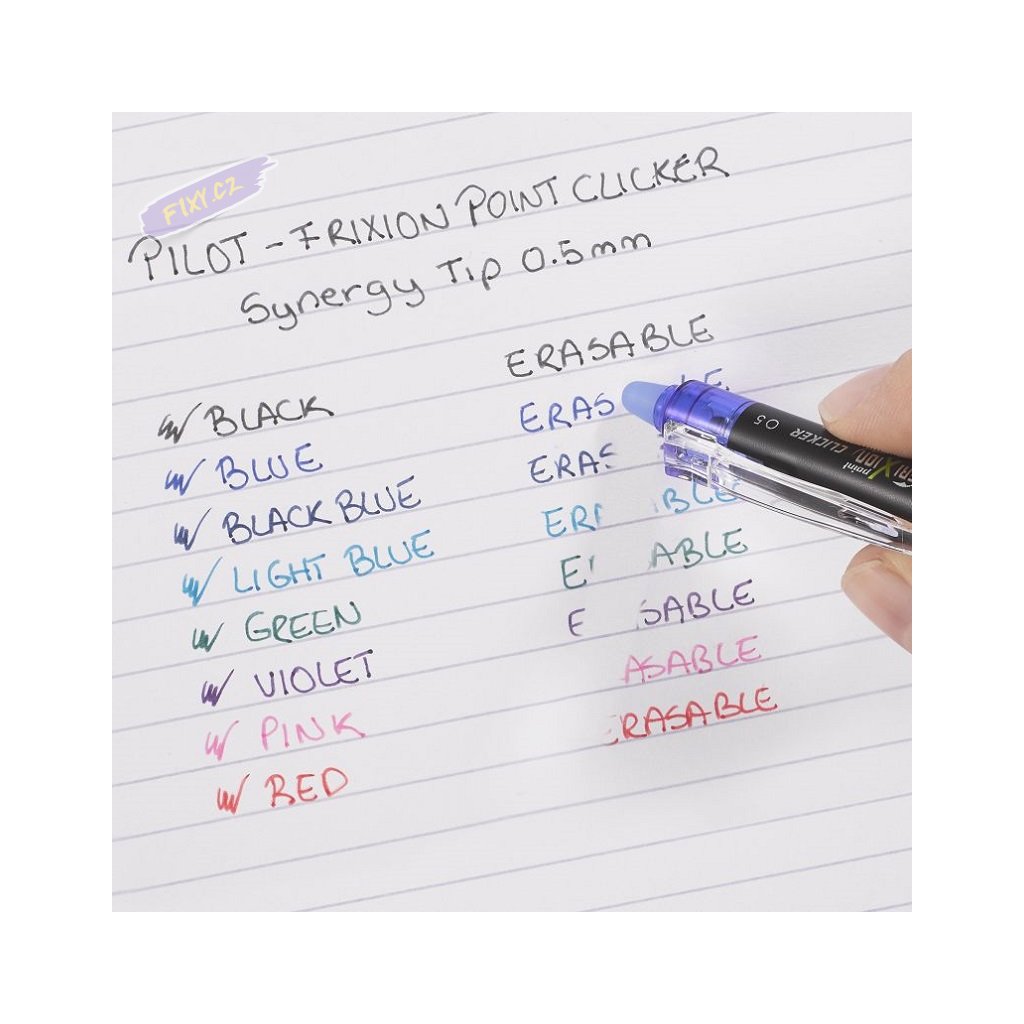 FIXY.CZ
PILOT - FRIXION POINT CLICKER
Synergy Tip 0.5mm
ERASABLE
BLACK
ERAS LE
BLUE
ERAS
BLACK BLUE
ER BLE
LIGHT BLUE
E ABLE
GREEN
E SABLE
VIOLET
ASABLE
PINK
ERASABLE
RED
FRIXION point CLICKER 0.5